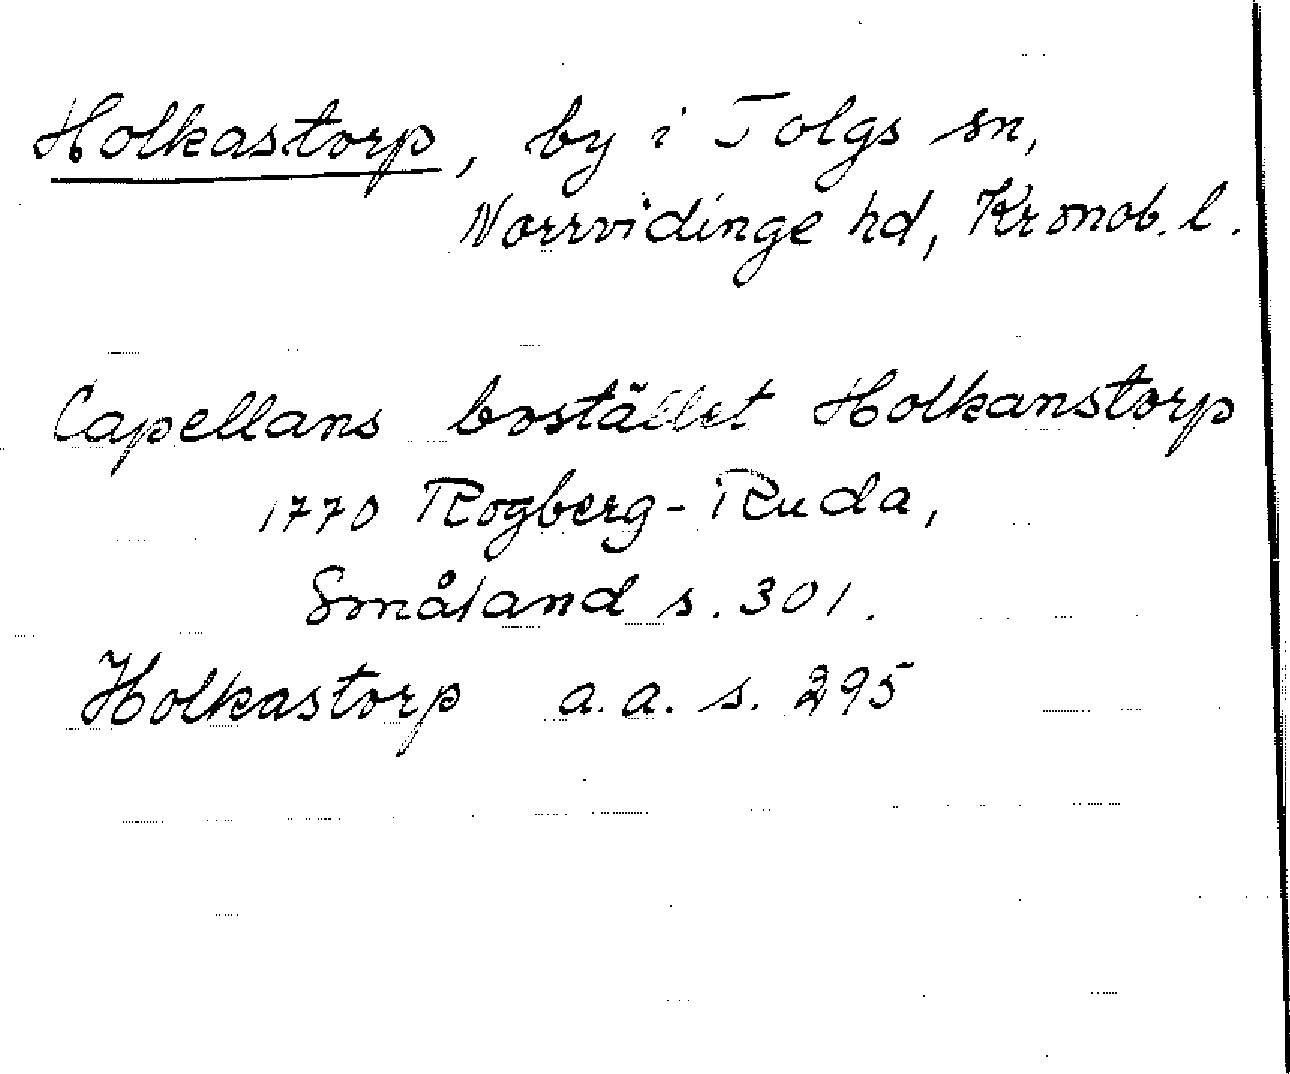 Holkastorp, by i Tolgs sn,
Norrvidinge hd, Kronob. l.
Capellans bostället Holkanstorp
1770 Rogberg-Ruda,
Småland s. 301.
Holkastorp a.a. s. 295